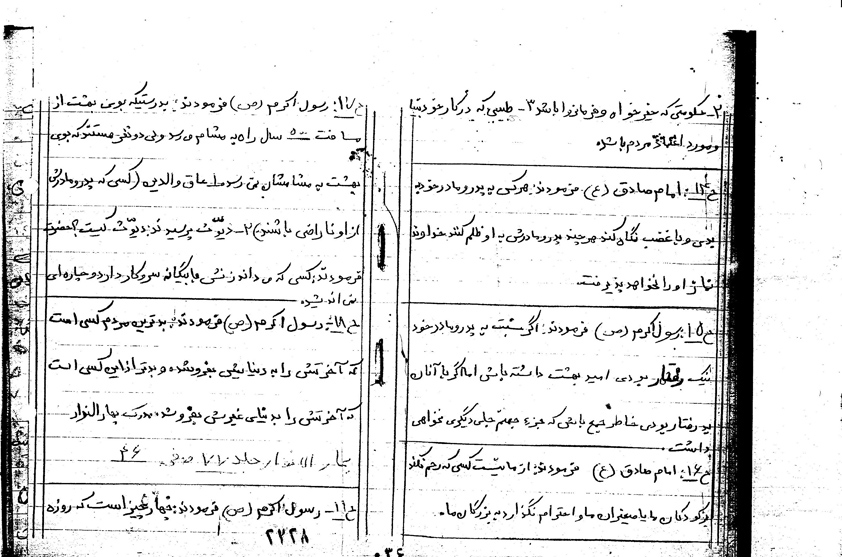 ۲- حکومتی که خیرخواه و فرمانروا باشد ۳- طبیبی که در کار خود دنیا
و مورد اعتماد مردم باشد
ح۱۴: امام صادق (ع) فرمودند: هرکس به پدر و مادر خود به
بدی و با غضب نگاه کند هر چند پدر و مادرش به او ظلم کنند خداوند
نماز او را نخواهد پذیرفت.
ح۱۵: رسول اکرم (ص) فرمودند: اگر نسبت به پدر و مادر خود
نیک رفتار بودی امید بهشت داشته باش اما اگر با آنان
بد رفتار بودی خاطر جمع باش که جزء جهنم جای دیگری نخواهی
داشت.
ح۱۶: امام صادق (ع) فرمودند: از ما نیست کسی که رحم نکند
بر کودکان ما یا میتوان ما و احترام نگذارد به بزرگان ما.
ح۱۷: رسول اکرم (ص) فرمودند: بدرستیکه بوی بهشت از
مسافت ۵۰۰ سال راه به مشام می رسد ولی دو نفر هستند که بوی
بهشت به مشامشان نمی رسد ۱- عاق والدین (کسی که پدر و مادرش
از او ناراضی باشند) ۲- دیوث پرسیدند: دیوث کیست؟ حضرت
فرمودند: کسی که می داند زنش با بیگانه سر و کار دارد و چاره ای
ح۱۸: رسول اکرم (ص) فرمودند: بدترین مردم کسی است
که آخرتش را به دنیایش بفروشد و بدتر از این کسی است
که آخرتش را به دنیای غیرش بفروشد. مدرک بهار النوار
بهار النوار جلد ۷۷ صفحه ۴۶
ح۱۹- رسول اکرم (ص) فرمودند: چهار چیز است که روزه
۲۳۲۸
۰۳۶